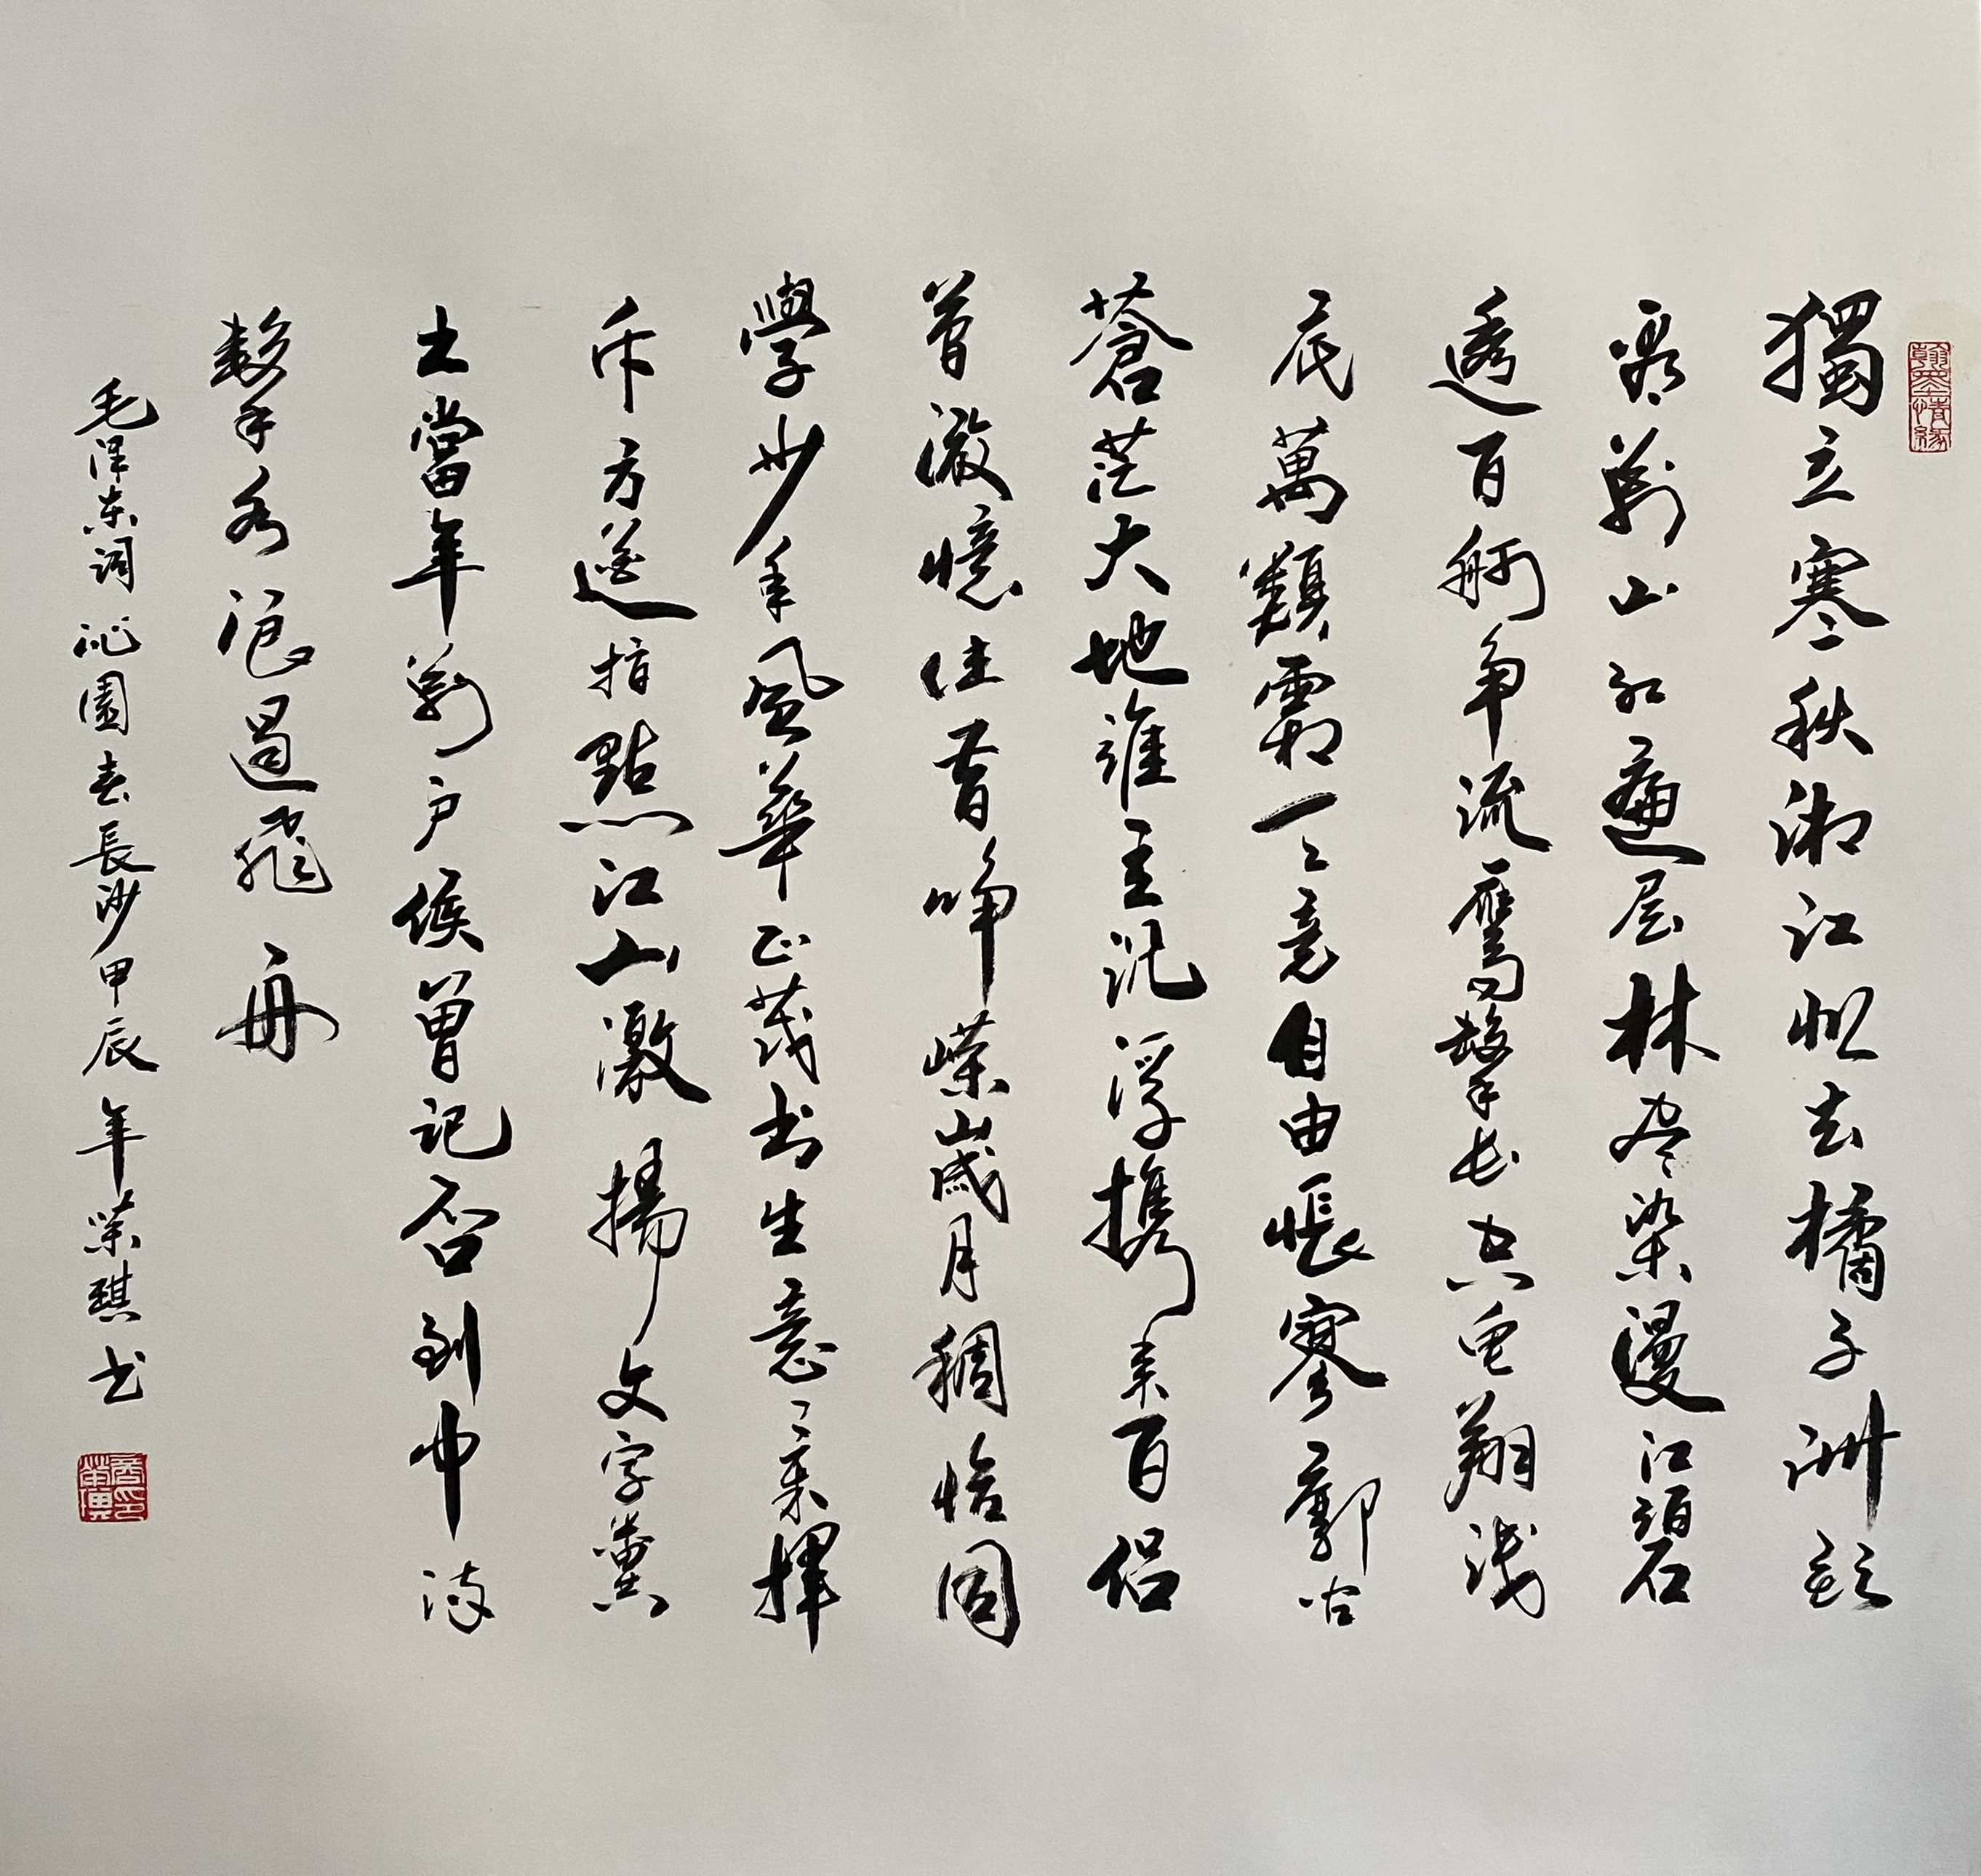 翰墨情緣
獨立寒秋湘江北去橘子洲頭
看萬山红遍层林尽染漫江碧
透百舸争流鷹擊长空鱼翔浅
底萬類霜天竞自由悵寥廓问
蒼茫大地誰主沉浮携来百侣
曾游憶往昔峥嶸歲月稠恰同
學少年風華正茂书生意氣揮
斥方遒指點江山激揚文字糞
土當年萬户侯曾記否到中流
擊水浪遏飛舟
毛泽东词沁園春長沙甲辰年榮琪书